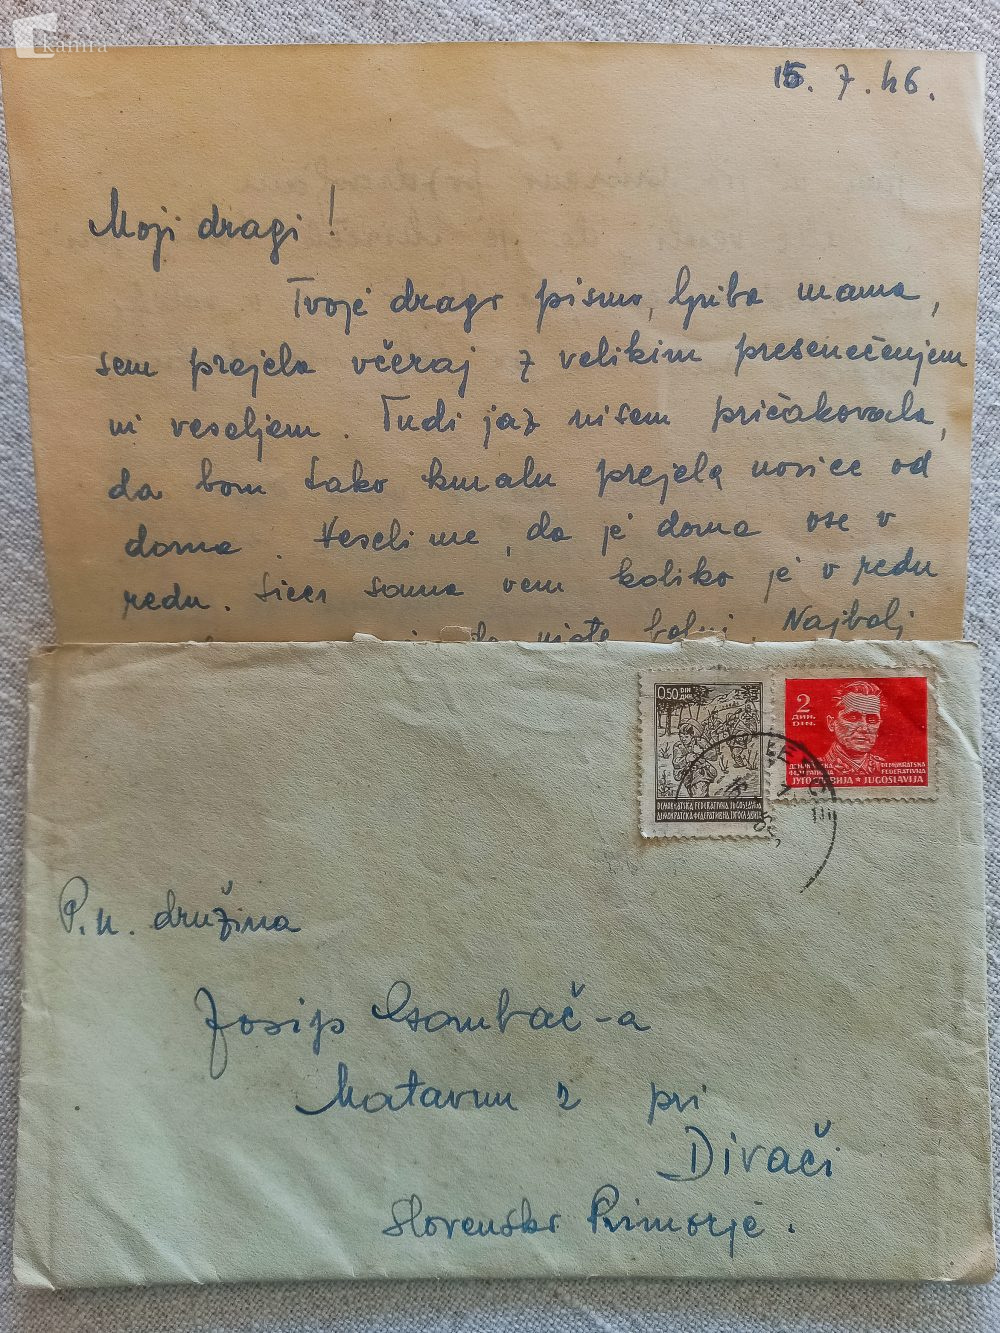 kamra
15. 7. 46.
Moji dragi!
Tvoje drago pismo, ljuba mama,
sem prejela včeraj z velikim presenečenjem
in veseljem. Tudi jaz nisem pričakovala,
da bom tako kmalu prejela novice od
doma. Veseli me, da je doma vse v
redu. Sicer sama vem koliko je v redu
da niste bolni. Najbolj
0.50 DIN ДИН.
DEMOKRATSKA FEDERATIVNA JUGOSLAVIJA
ДЕМОКРАТСКА ФЕДЕРАТИВНА ЈУГОСЛАВИЈА
2
ДИН.
DIN.
DEMOKRATSKA
FEDERATIVNA
ЈУГОСЛАВИЈА ★ JUGOSLAVIJA
P. n. družina
Josip Gombač-a
Matavun 2 pri
Divači
Slovensko Primorje.